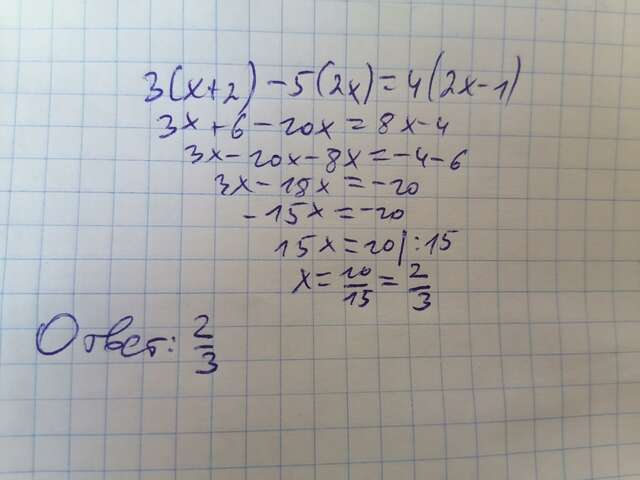 3(x+2)-5(2x)=4(2x-1)
3x+6-10x=8x-4
3x-10x-8x=-4-6
3x-18x=-10
-15x=-10
15x=10|:15
x=10/15=2/3
Ответ: 2/3